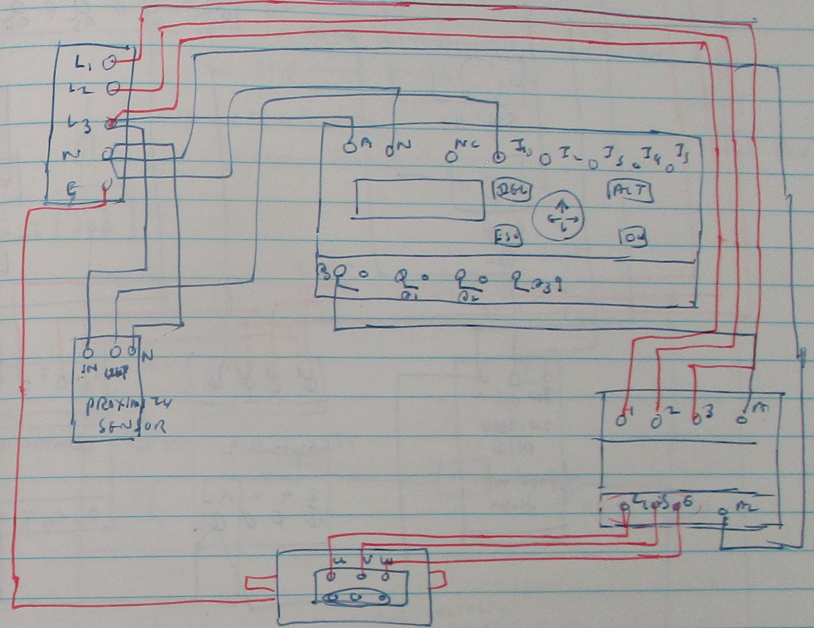 L1
L2
L3
N
E
A N NC I1 I2 I3 I4 I5
DEL ALT
ESC OK
Q1 Q2 Q3
IN OUT N
PROXIMITY
SENSOR
1 2 3 A1
4 5 6 A2
U V W